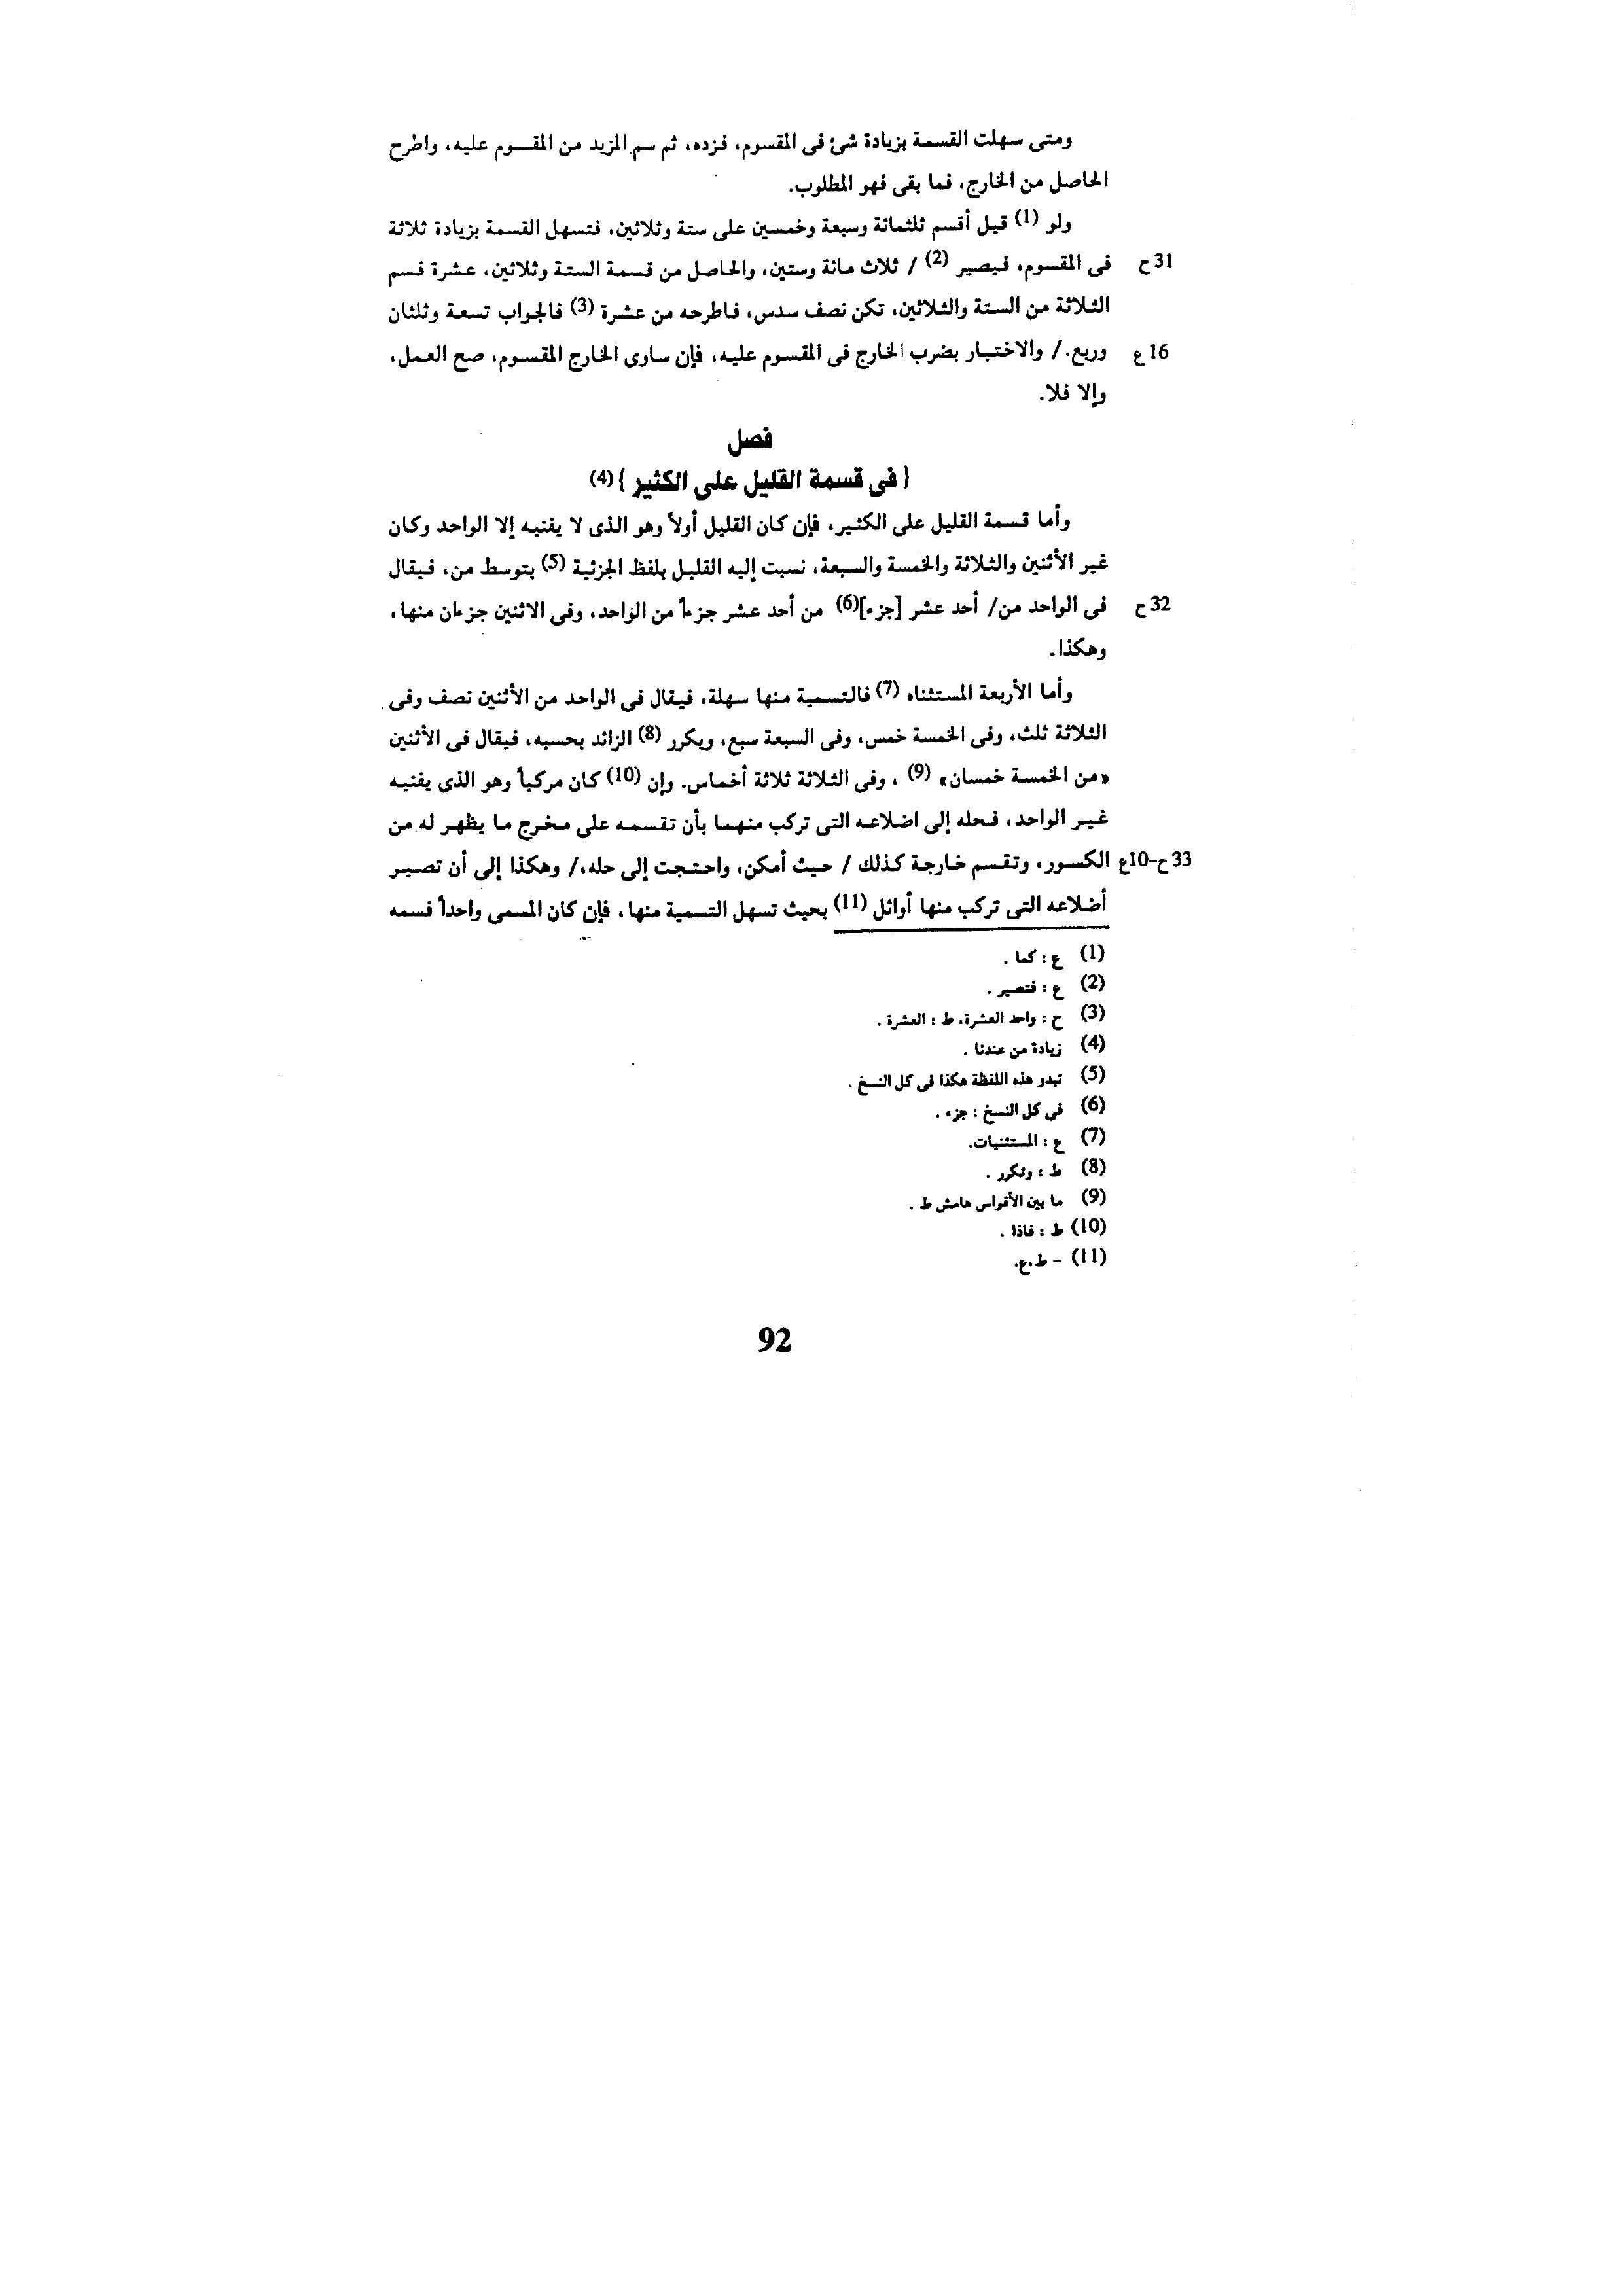 ومتى سهلت القسمة بزيادة شئ فى المقسوم، فزده، ثم سم المزيد من المقسوم عليه، واطرح
الحاصل من الخارج، فما بقى فهو المطلوب.
ولو (1) قيل أقسم ثلثمائة وسبعة وخمسين على ستة وثلاثين، فتسهل القسمة بزيادة ثلاثة
31 ح فى المقسوم، فيصير (2) / ثلاث مائة وستين، والحاصل من قسمة الستة وثلاثين، عشرة فسم
الثلاثة من الستة والثلاثين، تكن نصف سدس، فاطرحه من عشرة (3) فالجواب تسعة وثلثان
16 ع وربع. / والاختبار بضرب الخارج فى المقسوم عليه، فإن ساوى الخارج المقسوم، صح العمل،
وإلا فلا.
فصل
{ فى قسمة القليل على الكثير } (4)
وأما قسمة القليل على الكثير، فإن كان القليل أولاً وهو الذى لا يفنيه إلا الواحد وكان
غير الأثنين والثلاثة والخمسة والسبعة، نسبت إليه القليل بلفظ الجزئية (5) بتوسط من، فيقال
32 ح فى الواحد من/ أحد عشر [جزء](6) من أحد عشر جزءاً من الواحد، وفى الاثنين جزءان منها،
وهكذا.
وأما الأربعة المستثناه (7) فالتسمية منها سهلة، فيقال فى الواحد من الأثنين نصف وفى
الثلاثة ثلث، وفى الخمسة خمس، وفى السبعة سبع، ويكرر (8) الزائد بحسبه، فيقال فى الأثنين
«من الخمسة خمسان» (9) ، وفى الثلاثة ثلاثة أخماس. وإن (10) كان مركباً وهو الذى يفنيه
غير الواحد، فحله إلى اضلاعه التى تركب منهما بأن تقسمه على مخرج ما يظهر له من
33 ح-10ع الكسور، وتقسم خارجة كذلك / حيث أمكن، واحتجت إلى حله،/ وهكذا إلى أن تصير
أضلاعه التى تركب منها أوائل (11) بحيث تسهل التسمية منها، فإن كان المسمى واحداً فسمه
(1) ع : كما .
(2) ع : فتصير .
(3) ح : واحد العشرة، ط : العشرة .
(4) زيادة من عندنا .
(5) تبدو هذه اللفظة هكذا فى كل النسخ .
(6) فى كل النسخ : جزء .
(7) ع : المستثنيات.
(8) ط : وتكرر .
(9) ما بين الأقواس هامش ط .
(10) ط : فاذا .
(11) - ط،ع.
92